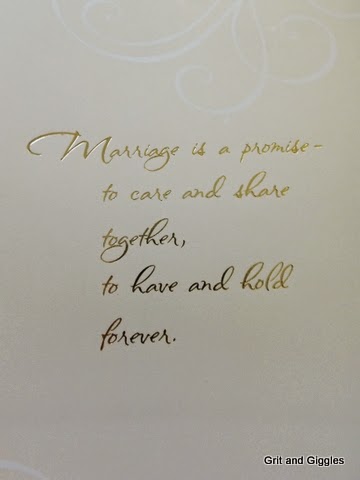 Marriage is a promise-
to care and share
together,
to have and hold
forever.
Grit and Giggles